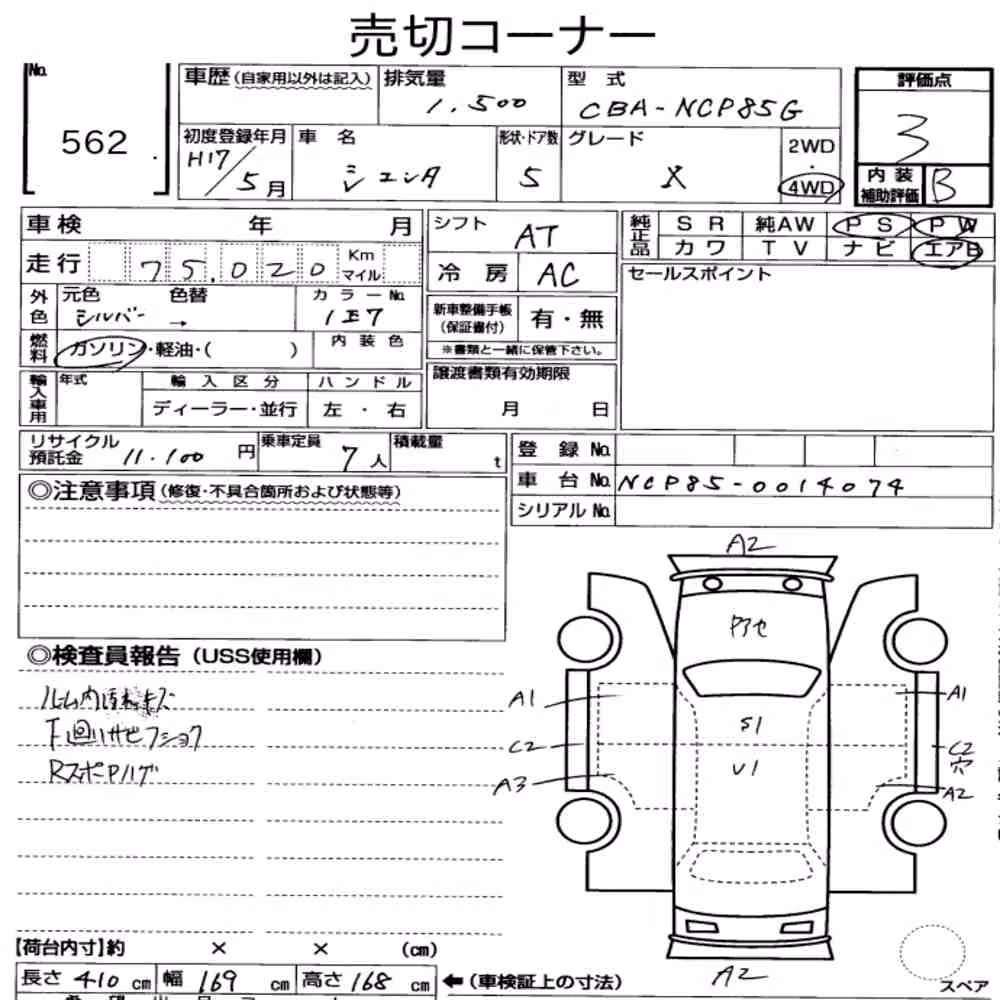 売切コーナー
No. 562
車歴(自家用以外は記入) 排気量 1,500 型式 CBA-NCP85G 評価点 3
初度登録年月 H17/5月 車名 シエンタ 形状・ドア数 5 グレード X 2WD・4WD 内装補助評価 B
車検 年 月 シフト AT 純正品 SR 純AW PS PW
走行 75,020 Km マイル 冷房 AC カワ TV ナビ エアB
セールスポイント
外色 元色 シルバー → 色替 カラーNo. 1E7 新車整備手帳(保証書付) 有・無
燃料 ガソリン・軽油・( ) 内装色 ※書類と一緒に保管下さい。
輸入車用 年式 輸入区分 ハンドル 譲渡書類有効期限
ディーラー・並行 左・右 月 日
リサイクル預託金 11.100円 乗車定員 7人 積載量 t 登録No.
車台No. NCP85-0014074
◎注意事項(修復・不具合箇所および状態等) シリアルNo.
◎検査員報告(USS使用欄)
ルーム内
下回りサビフショク
RスポPハゲ
A2
Pアセ
A1 A1
S1
C2 C2
穴
U1
A3 A2
A2
スペア
【荷台内寸】約 × × (cm)
長さ 410 cm 幅 169 cm 高さ 168 cm ←(車検証上の寸法)